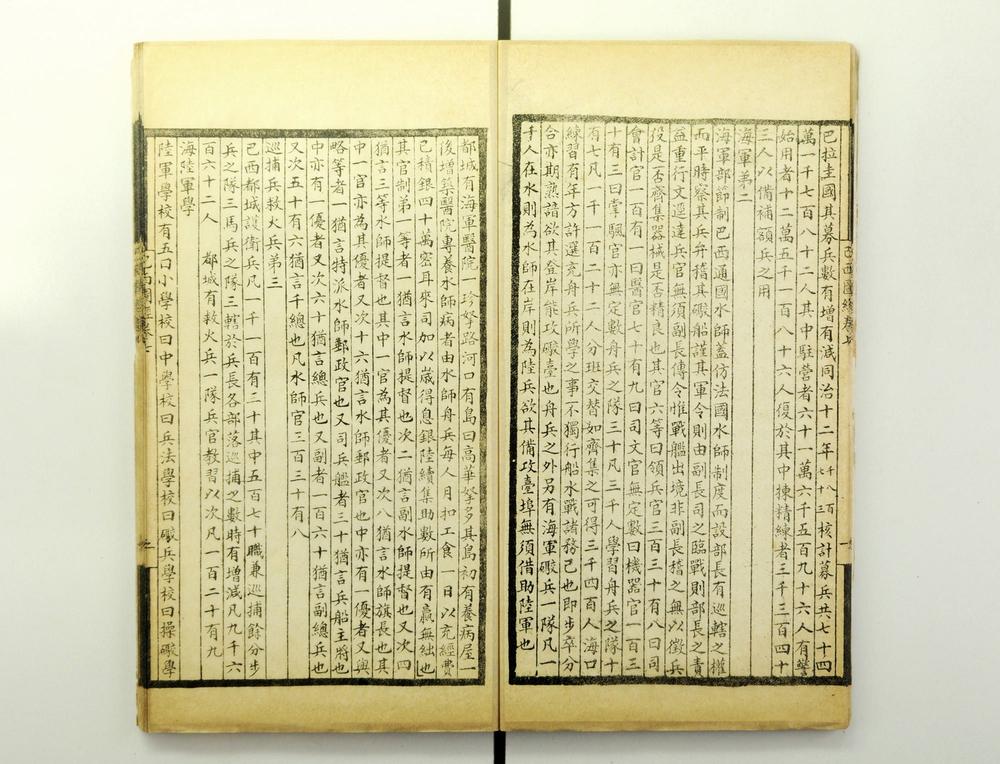 巴拉圭國其募兵數有增有減同治十二年千八百七十三核計募兵共七十四
萬一千七百八十二人其中駐營者六十一萬六千五百九十六人有警
始用者十二萬五千一百八十六人復於其中揀精練者三千三百四十
三人以備補額兵之用
海軍第二
海軍部節制巴西通國水師蓋仿法國水師制度而設部長有巡轄之權
而平時察其兵弁稽其礮船謹其軍令則由副長司之臨戰則部長之責
益重行文遥達兵官無須副長傳令惟戰艦出境非副長稽之無以徵兵
役是否齊集器械是否精良也其官六等曰領兵官三百三十有八曰司
會計官一百有一曰醫官七十有九曰司文官無定數曰機器官一百三
十有三曰掌颿官亦無定數舟兵之隊三十凡三千人學習舟兵之隊十
有七凡一千一百二十二人分班交替如齊集之可得三千四百人海口
練習有年方許選充舟兵所學之事不獨行船水戰諸務已也即步卒分
合亦期熟諳欲其登岸能攻礮臺也舟兵之外另有海軍礮兵一隊凡一
千人在水則為水師在岸則為陸兵欲其備攻臺埠無須借助陸軍也
都城有海軍醫院一珍拏路河口有島曰高華拏多其島初有養病屋一
後增築醫院專養水師病者由水師舟兵每人月扣工食一日以充經費
已積銀四十萬密耳來司加以歲得息銀陸續集助數所由有贏無絀也
其官制第一等者一猶言水師提督也次二猶言副水師提督也又次四
猶言三等水師提督也其中一官為其優者又次八猶言水師旗長也其
中一官亦為其優者又次十六猶言水師郵政官也中亦有一優者又與
略等者一猶言特派水師郵政官也又司兵艦者三十猶言兵船主將也
中亦有一優者又次六十猶言總兵也又副者一百六十猶言副總兵也
又次五十有六猶言千總也凡水師官三百三十有八
巡捕兵救火兵第三
巴西都城護衛兵凡一千一百有二十其中五百七十職兼巡捕餘分步
兵之隊三馬兵之隊三轄於兵長各部落巡捕之數時有增減凡九千六
百六十二人　都城有救火兵一隊兵官教習以次凡一百二十有九
海陸軍學
陸軍學校有五曰小學校曰中學校曰兵法學校曰礮兵學校曰操礮學